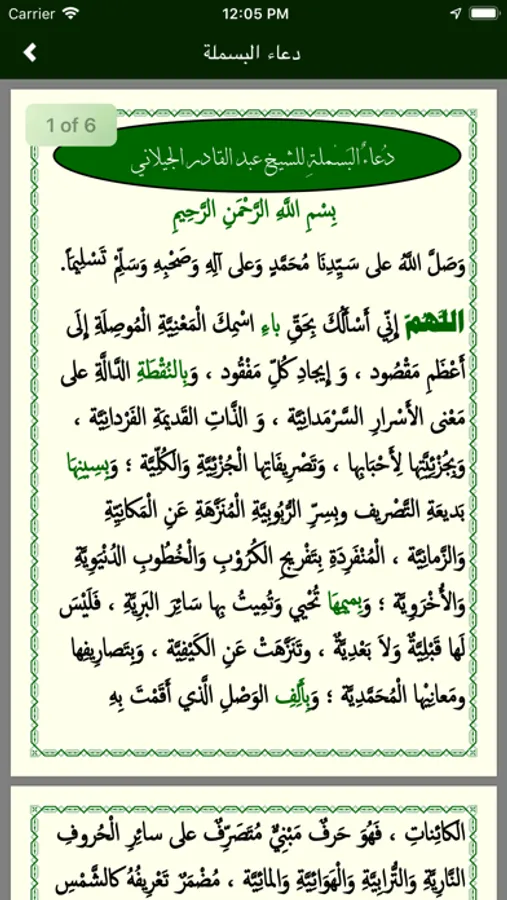 Carrier 12:05 PM
دعاء البسملة
1 of 6
دُعاءُ البَسْملةِ للشيخ عبد القادر الجيلاني
بِسْمِ اللَّهِ الرَّحْمَنِ الرَّحِيمِ
وَصَلَّ اللَّهُ على سَيِّدِنَا مُحَمَّدٍ وَعلى آلِهِ وَصَحْبِهِ وَسَلِّمْ تَسْلِيمَاً.
اللَّهُمَّ إِنِّي أَسْأَلُكَ بِحَقِّ باءِ اسْمِكَ الْمَعْنِيَّةِ الْمُوصِلَةِ إِلَى
أَعْظَمِ مَقْصُود ، وَ إِيجادِ كُلِّ مَفْقُود ، وَبِالنُقْطَةِ الدَّالَّةِ على
مَعْنى الأَسْرارِ السَّرْمَدانِيَّة ، وَ الذَّاتِ القَديمَةِ الفَرْدانِيَّة ،
وَبِجُزْئِيَّتِها لِأَحْبَابِها ، وَتَصْرِيفَاتِها الْجُزْئِيَّةِ وَالكُلِّيَّة ؛ وَبِسِينِهَا
بَديعَةِ التَّصْريف وبِسِرِّ الرُّبُوبِيَّةِ الْمُنَزَّهَةِ عَنِ الْمَكانِيَّةِ
وَالزَّمانِيَّة ، الْمُنْفَرِدَةِ بِتَفْريجِ الكُرُوْبِ وَالْخُطُوبِ الدُنْيَوِيَّةِ
وَالأُخْرَوِيَّة ؛ وَبِمِيمِهَا تُحْيي وَتُمِيتُ بِها سَائِرَ البَرِيَّةِ ، فَلَيْسَ
لَها قَبْلِيَّةٌ وَلاَ بَعْدِيَّةٌ ، وتَنَزَّهَتْ عَنِ الكَيْفِيَّة ، وَبِتَصارِيفِها
ومَعانِيْها الْمُحَمَّدِيَّة ؛ وَبِأَلِفِ الوَصْلِ الَّذي أَقَمْتَ بِهِ
الكائِناتِ ، فَهُوَ حَرفٌ مَبْنِيٌّ مُتَصَرِّفٌ على سائِرِ الْحُروفِ
النَّارِيَّةِ وَالتُّرابِيَّةِ وَالْهَوَائِيَّةِ وَالمائِيَّة ، مُضْمَرٌ تَعْرِيفُهُ كالشَّمْسِ